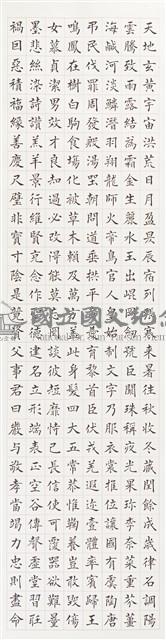 天地玄黃宇宙洪荒日月盈昃辰宿列張寒來暑往秋收冬藏閏餘成歲律呂調陽
雲騰致雨露結為霜金生麗水玉出崑岡劍號巨闕珠稱夜光果珍李柰菜重芥薑
海鹹河淡鱗潛羽翔龍師火帝鳥官人皇始制文字乃服衣裳推位讓國有虞陶唐
弔民伐罪周發殷湯坐朝問道垂拱平章愛育黎首臣伏戎羌遐邇壹體率賓歸王
鳴鳳在樹白駒食場化被草木賴及萬方蓋此身髮四大五常恭惟鞠養豈敢毀傷
女慕貞絜男效才良知過必改得能莫忘罔談彼短靡恃己長信使可覆器欲難量
墨悲絲染詩讚羔羊景行維賢克念作聖德建名立形端表正空谷傳聲虛堂習聽
禍因惡積福緣善慶尺璧非寶寸陰是競資父事君曰嚴與敬孝當竭力忠則盡命
國立國父紀念館